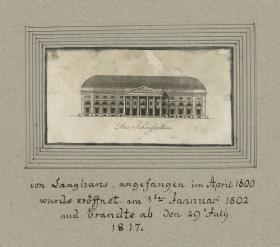 Das Schauspielhaus
von Langhans, angefangen im April 1800
wurde eröffnet am 1ten Jannuar 1802
und brandte ab den 29' July
1817.